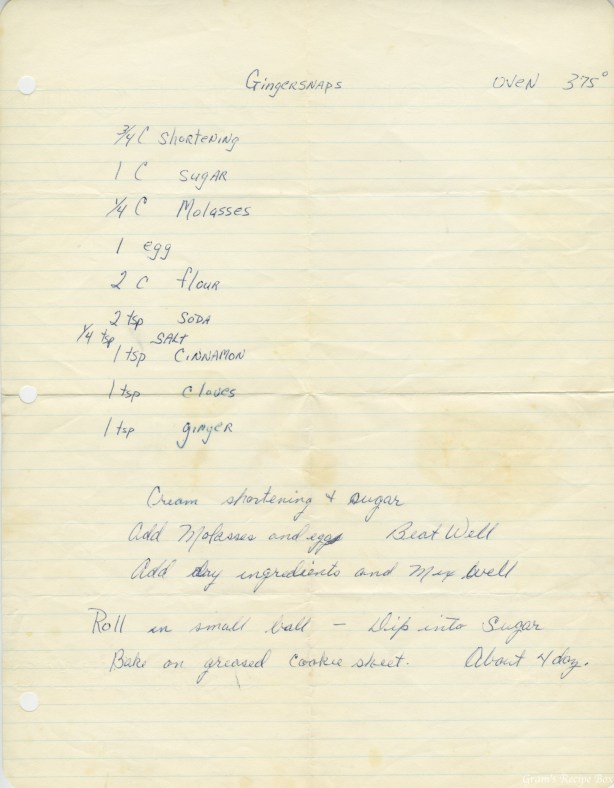 Gingersnaps OVEN 375°
3/4 C Shortening
1 C Sugar
1/4 C Molasses
1 egg
2 C flour
2 tsp SODA
1/4 tsp SALT
1 tsp CINNAMON
1 tsp Cloves
1 tsp ginger
Cream shortening & sugar
Add Molasses and egg Beat Well
Add dry ingredients and Mix Well
Roll in small ball – Dip into Sugar
Bake on greased cookie sheet. About 4 doz.
Gram's Recipe Box